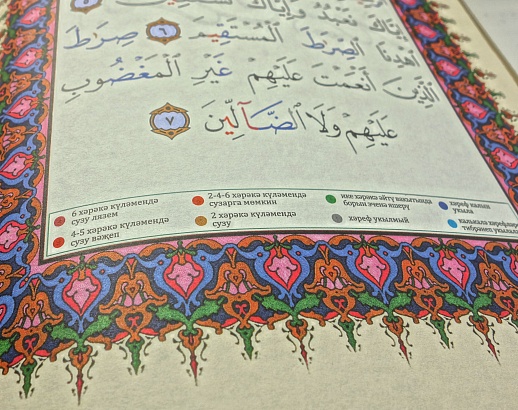 ٥
إِيَّاكَ نَعْبُدُ وَإِيَّاكَ نَسْتَعِينُ
ٱهْدِنَا ٱلصِّرَٰطَ ٱلْمُسْتَقِيمَ ٦ صِرَٰطَ
ٱلَّذِينَ أَنْعَمْتَ عَلَيْهِمْ غَيْرِ ٱلْمَغْضُوبِ
عَلَيْهِمْ وَلَا ٱلضَّآلِّينَ ٧
6 хәрәкә күләмендә сузу лязем
4-5 хәрәкә күләмендә сузу вәҗеп
2-4-6 хәрәкә күләмендә сузарга мөмкин
2 хәрәкә күләмендә сузу
ике хәрәкә әйтү вакытында борын эченә кертү
хәреф укылмый
хәреф калын укыла